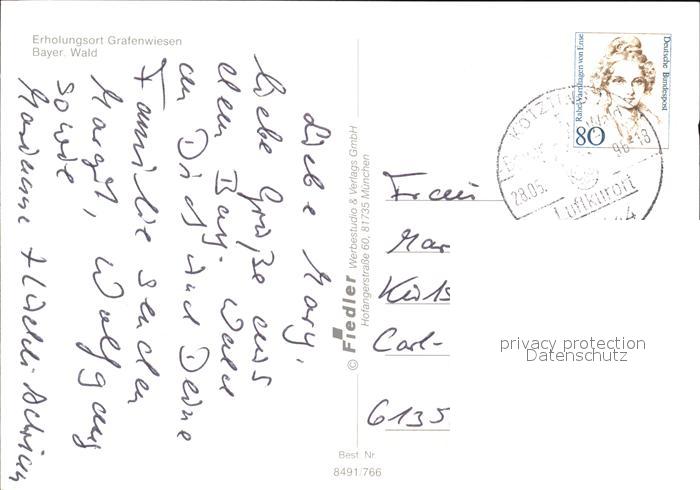 Erholungsort Grafenwiesen
Bayer. Wald
Liebe Mary,
liebe Grüße aus
dem Bay. Wald
an Dich und Deine
Familie senden
Margit, Wolfgang
sowie
Marianne + Waldi
© Fiedler Werbestudio & Verlags GmbH
Hofangerstraße 60, 81735 München
Best. Nr
8491/766
Rahel Varnhagen von Ense
Deutsche Bundespost
80
28.05.
96-18
Luftkurort
Frau
Mar
Carl-
6135
privacy protection
Datenschutz